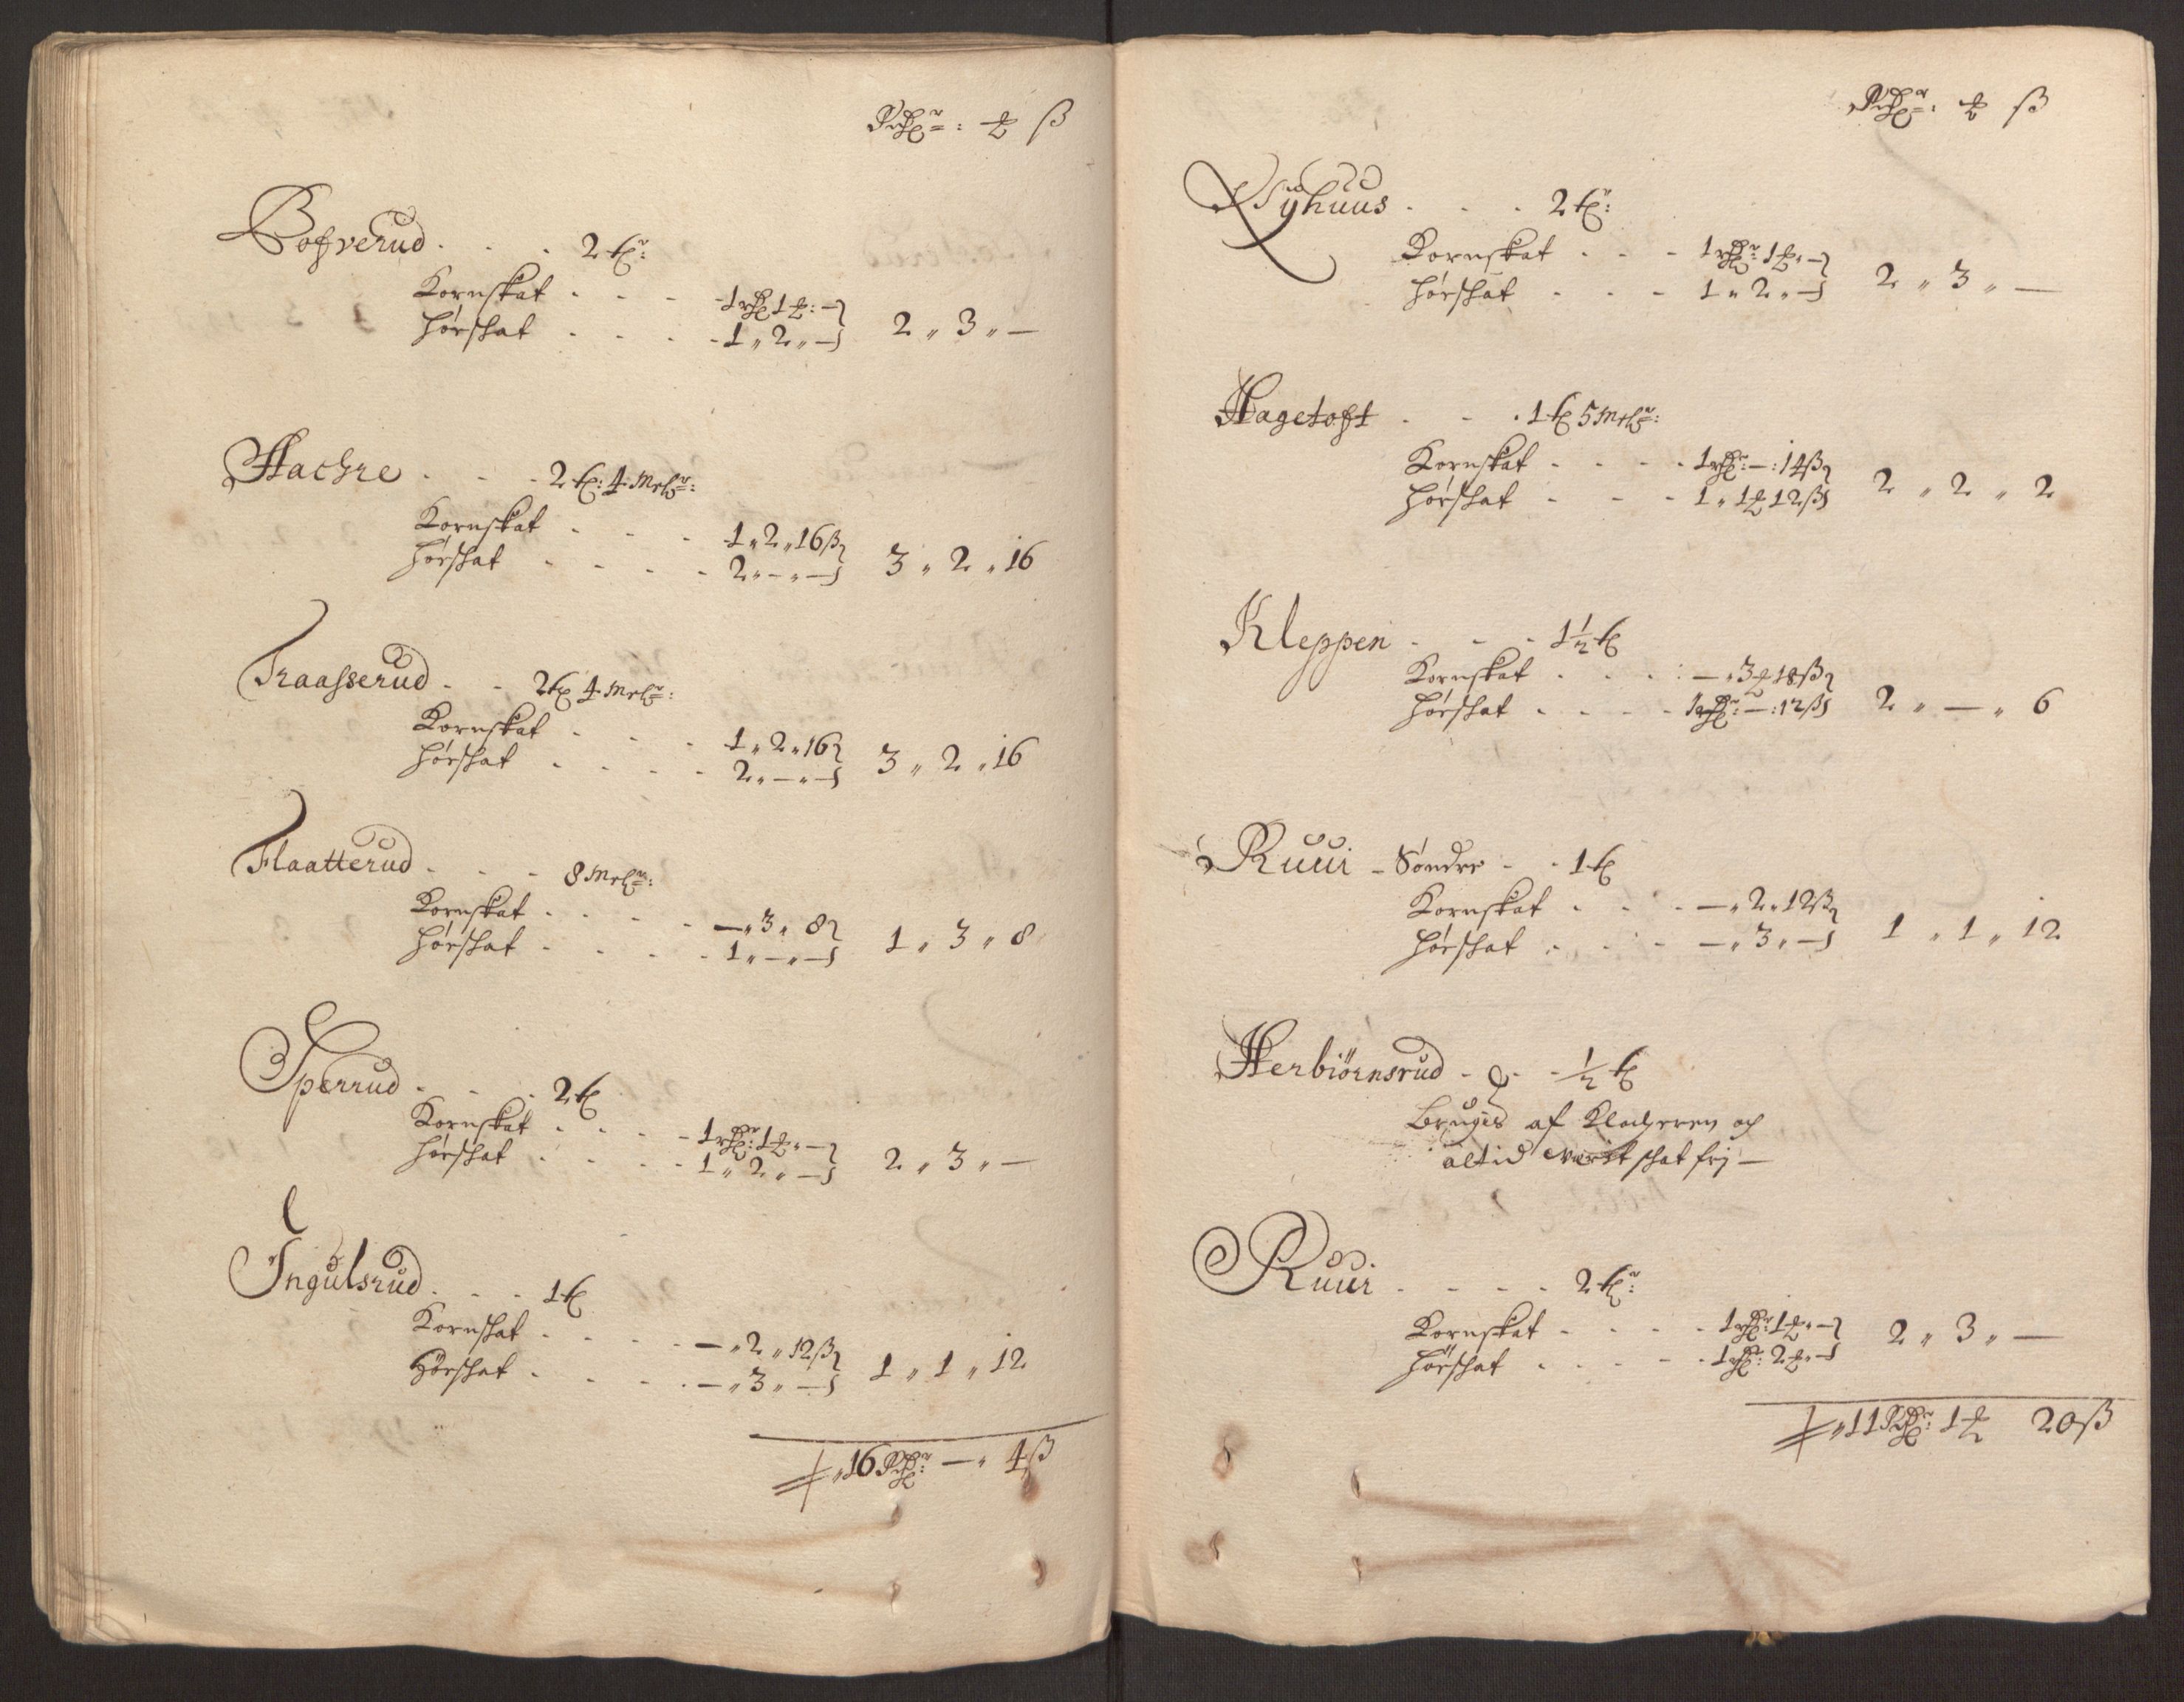 Rdr: ort ß
Bofverud . . . 2 tr:
Kornskat . . . 1 rdr 1 ort: — 
hørskat . . . 1 „ 2 „ — 2 „ 3 „ —
Hachre . . . 2 t: 4 Mrkr:
Kornskat . . . 1 „ 2 „ 16 ß
hørskat . . . . 2 „ — „ — 3 „ 2 „ 16
Traasserud . . 2 t 4 Mrkr:
Kornskat . . . 1 „ 2 „ 16
hørskat . . . . 2 „ — „ — 3 „ 2 „ 16
Flaatterud . . . 8 Mrkr:
Kornskat . . . . — „ 3 „ 8
hørskat . . . . 1 „ — „ — 1 „ 3 „ 8
Sperrud . . . 2 t
Kornskat . . . . 1 rdr: 1 ort „ —
hørskat . . . . 1 „ 2 „ — 2 „ 3 „ —
Ingulsrud . . . 1 t
Kornskat . . . . — „ 2 „ 12 ß
Hørskat . . . . — „ 3 „ — 1 „ 1 „ 12
„ 16 Rdr: — „ 4 ß
Rdr: ort ß
Nÿhuus . . . 2 tr:
Kornskat . . . 1 rdr 1 ort „ —
hørskat . . . 1 „ 2 „ — 2 „ 3 „ —
Hagetoft . . . 1 t 5 Mrkr:
Kornskat . . . . 1 rdr: — : 14 ß
hørskat . . . 1 „ 1 ort 12 ß 2 „ 2 „ 2
Kleppen . . . 1 1/2 t
Kornskat . . . : — „ 3 ort 18 ß
hørskat . . . . 1 rdr: — : 12 ß 2 „ — „ 6
Ruui - Søndre . . 1 t
Kornskat . . . — „ 2 „ 12 ß
hørskat . . . — „ 3 „ — 1 „ 1 „ 12
Herbiörnsrud . . . 1/2 t
Bruges af Klocheren och
altid verit skat frj —
Ruui . . . . 2 tr:
Kornskat . . . . 1 rdr: 1 ort „ —
hørskat . . . . 1 rdr: 2 ort „ — 2 „ 3 „ —
„ 11 Rdr: 1 ort 20 ß